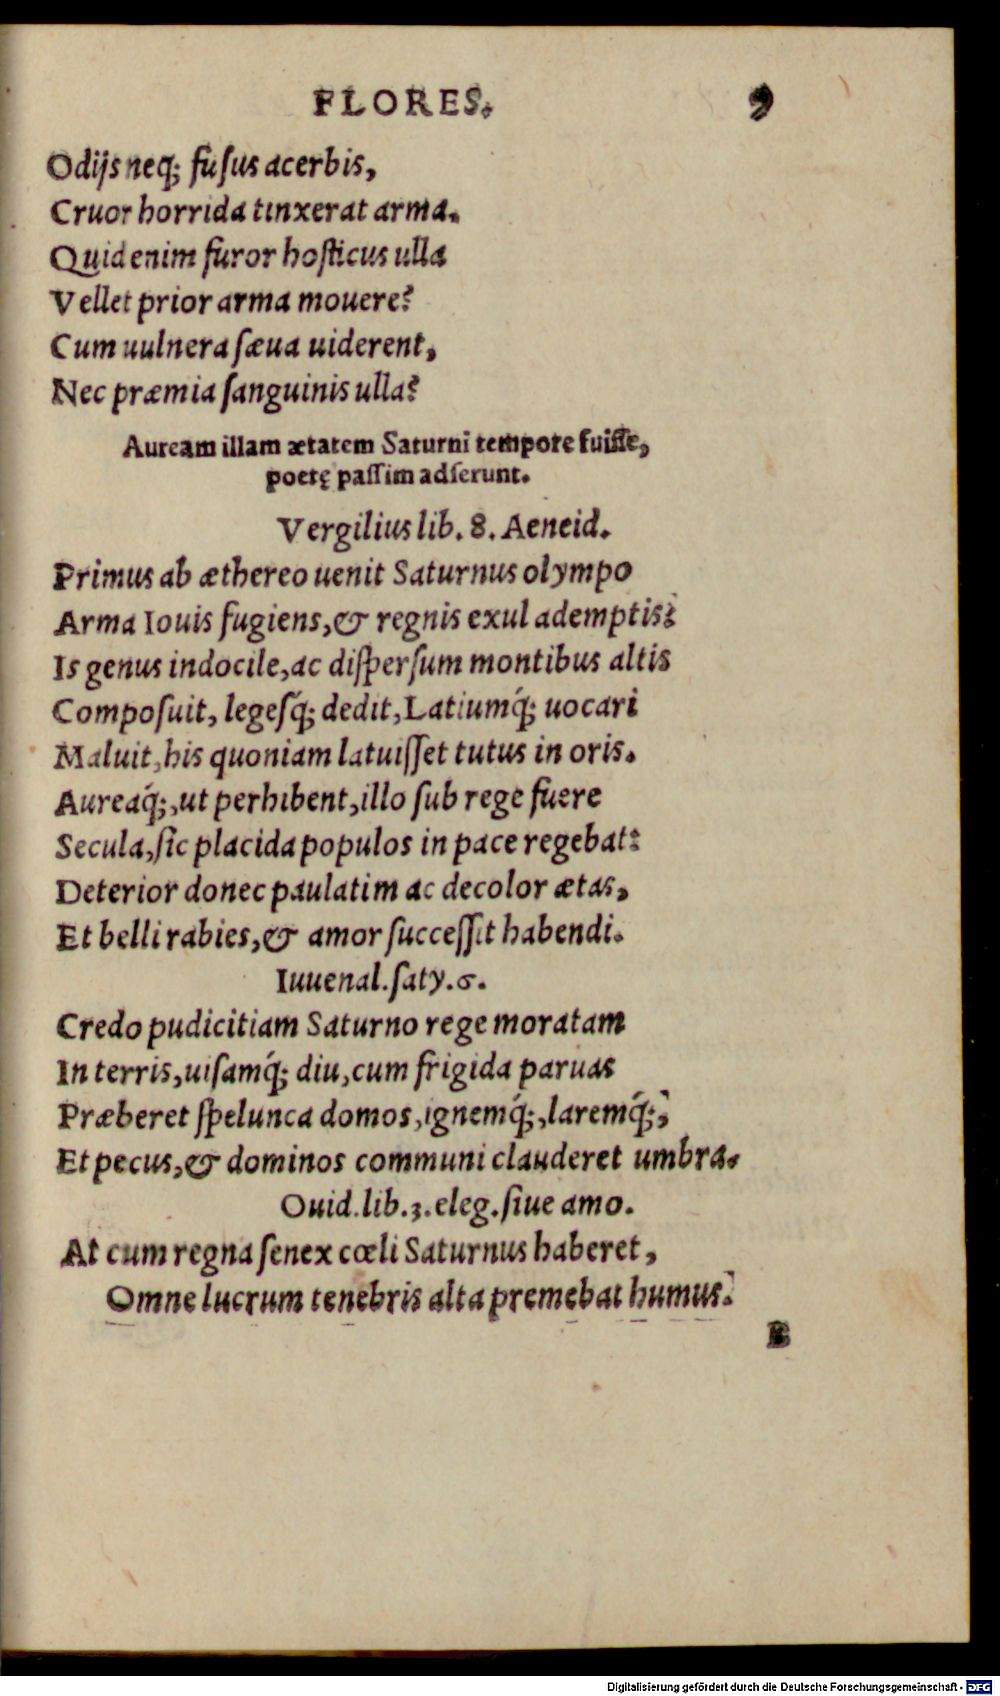 FLORES. 9
Odijs neq; fuſus acerbis,
Cruor horrida tinxerat arma.
Quid enim furor hoſticus ulla
Vellet prior arma mouere?
Cum uulnera ſæua uiderent,
Nec præmia ſanguinis ulla?
Auream illam ætatem Saturni tempore fuiſſe,
poetę paſſim adſerunt.
Vergilius lib. 8. Aeneid.
Primus ab æthereo uenit Saturnus olympo
Arma Iouis fugiens, & regnis exul ademptis:
Is genus indocile, ac diſperſum montibus altis
Compoſuit, legeſq́; dedit, Latiumq́; uocari
Maluit, his quoniam latuiſſet tutus in oris.
Aureaq́;, ut perhibent, illo ſub rege fuere
Secula, ſic placida populos in pace regebat:
Deterior donec paulatim ac decolor ætas,
Et belli rabies, & amor ſucceſſit habendi.
Iuuenal. ſaty. 6.
Credo pudicitiam Saturno rege moratam
In terris, uiſamq́; diu, cum frigida paruas
Præberet ſpelunca domos, ignemq́;, laremq́;,
Et pecus, & dominos communi clauderet umbra.
Ouid. lib. 3. eleg. ſiue amo.
At cum regna ſenex cœli Saturnus haberet,
Omne lucrum tenebris alta premebat humus.
B
Digitalisierung gefördert durch die Deutsche Forschungsgemeinschaft - DFG